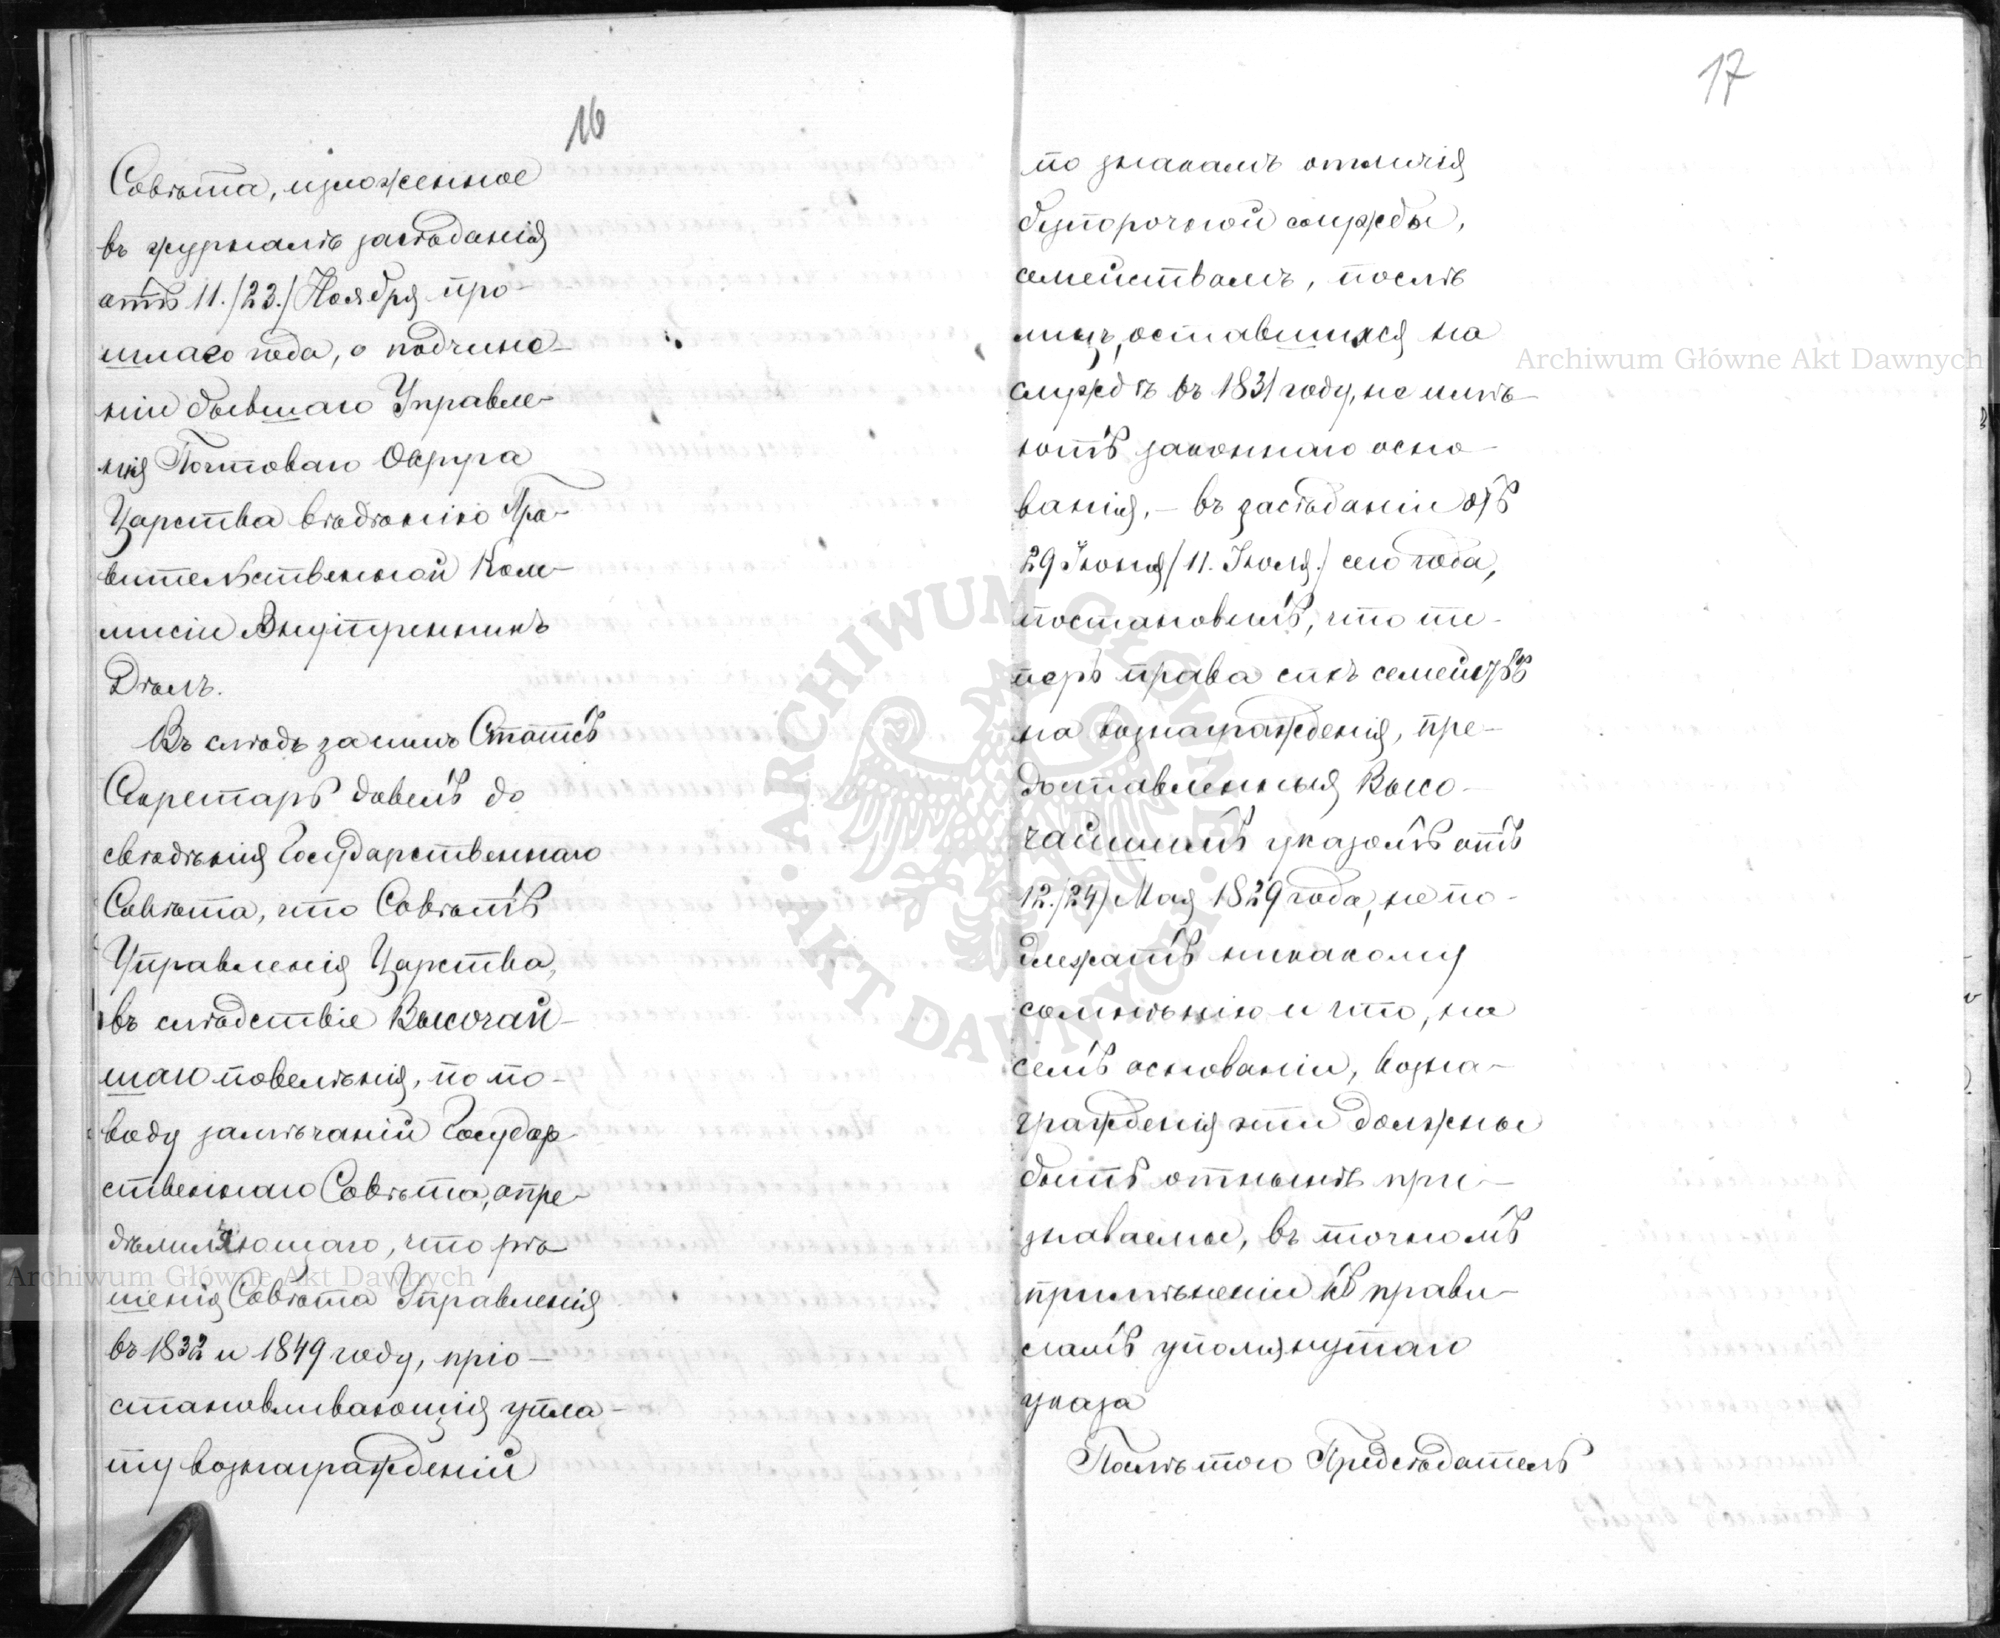 16
Совѣта, изложенное
въ журналѣ засѣданія
отъ 11./23./Ноября про-
шлаго года, о подчине-
ніи бывшаго Управле-
нія Почтоваго Округа
Царства вѣдѣнію Пра-
вительственной Ком-
мисіи Внутреннихъ
Дѣлъ.
Въ слѣдъ за симъ Статсъ
Секретарь довелъ до
свѣдѣнія Государственнаго
Совѣта, что Совѣтъ
Управленія Царства,
въ слѣдствіе Высочай-
шаго повелѣнія, по по-
воду замѣчаній Государ-
ственнаго Совѣта, опре-
что рѣ-
шенія Совѣта Управленія
въ 1832 и 1849 году, пріо-
становливающія упла-
ту вознагражденій
17
по знакамъ отличія
безпорочной службы,
семействамъ, послѣ
лицъ, оставшихся на
службѣ въ 1831 году, не имѣ-
ютъ законнаго осно-
ванія, - въ засѣданіи отъ
29 Іюня/11. Іюля./ сего года,
постановилъ, что те-
перь права сихъ семействъ
на вознагражденія, пре-
доставленныя Высо-
чайшимъ указомъ отъ
12./24/ Мая 1829 года, не по-
длежатъ никакому
сомнѣнію и что, на
семъ основаніи, возна-
гражденія эти должны
быть отнынѣ при-
знаваемы, въ точномъ
примѣненіи къ прави-
ламъ упомянутаго
указа
Послѣ того Предсѣдатель
Archiwum Główne Akt Dawnych
Archiwum Główne Akt Dawnych
ARCHIWUM GŁÓWNE
AKT DAWNYCH